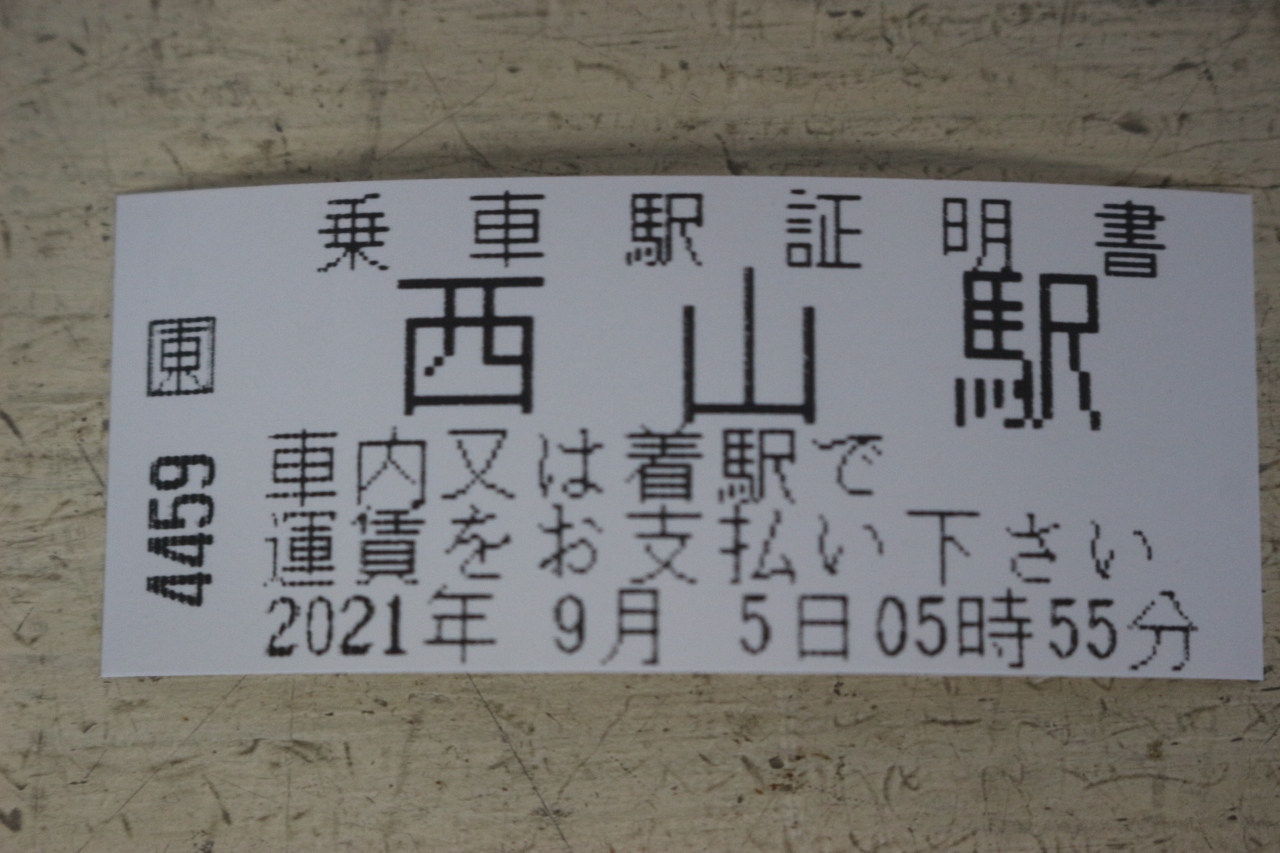 乗車駅証明書
西山駅
東
4459
車内又は着駅で
運賃をお支払い下さい
2021年 9月 5日05時55分